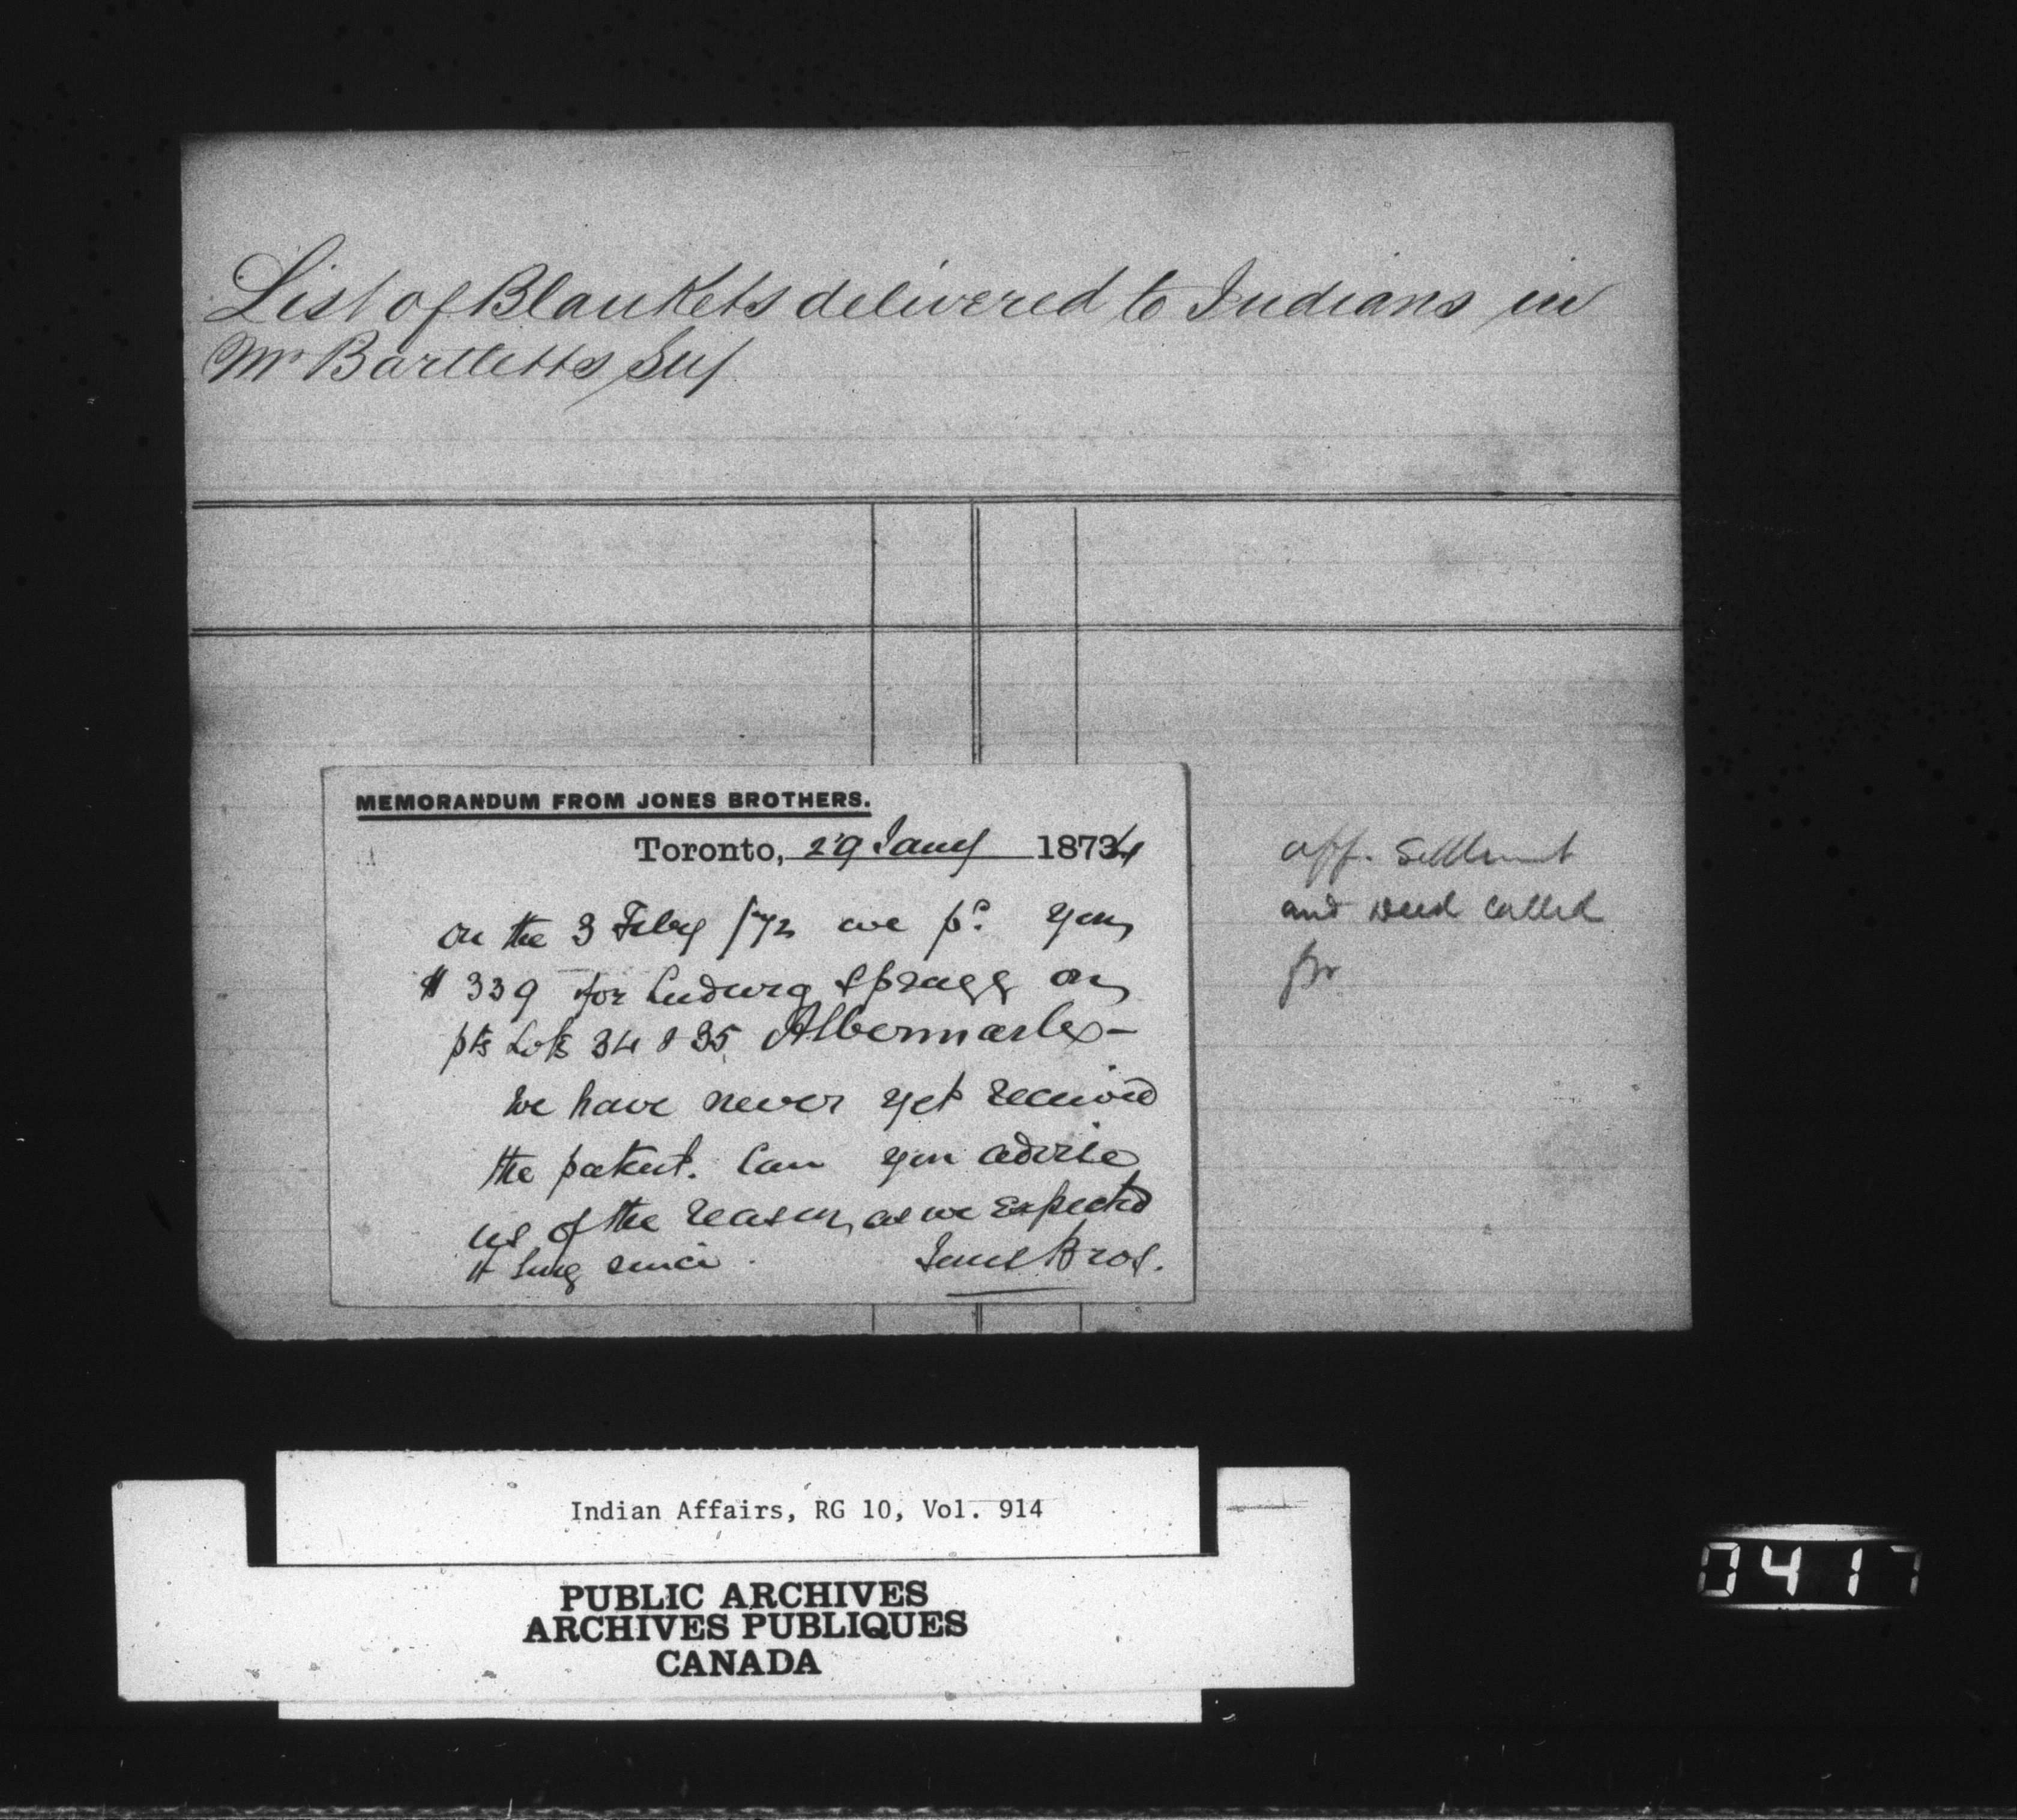 List of Blankets delivered to Indians in
Mr Bartletts Sup
MEMORANDUM FROM JONES BROTHERS.
Toronto, 29 Jany 1874
on the 3 Feby /72 we pd. you
$339 for Ludwig Spragg on
pts Lots 34 & 35 Albermarle -
We have never yet received
the patent. Can you advise
us of the reason, as we expected
it long since. Jones Bros.
aff. Settlement
and deed called
for
Indian Affairs, RG 10, Vol. 914
PUBLIC ARCHIVES
ARCHIVES PUBLIQUES
CANADA
0417